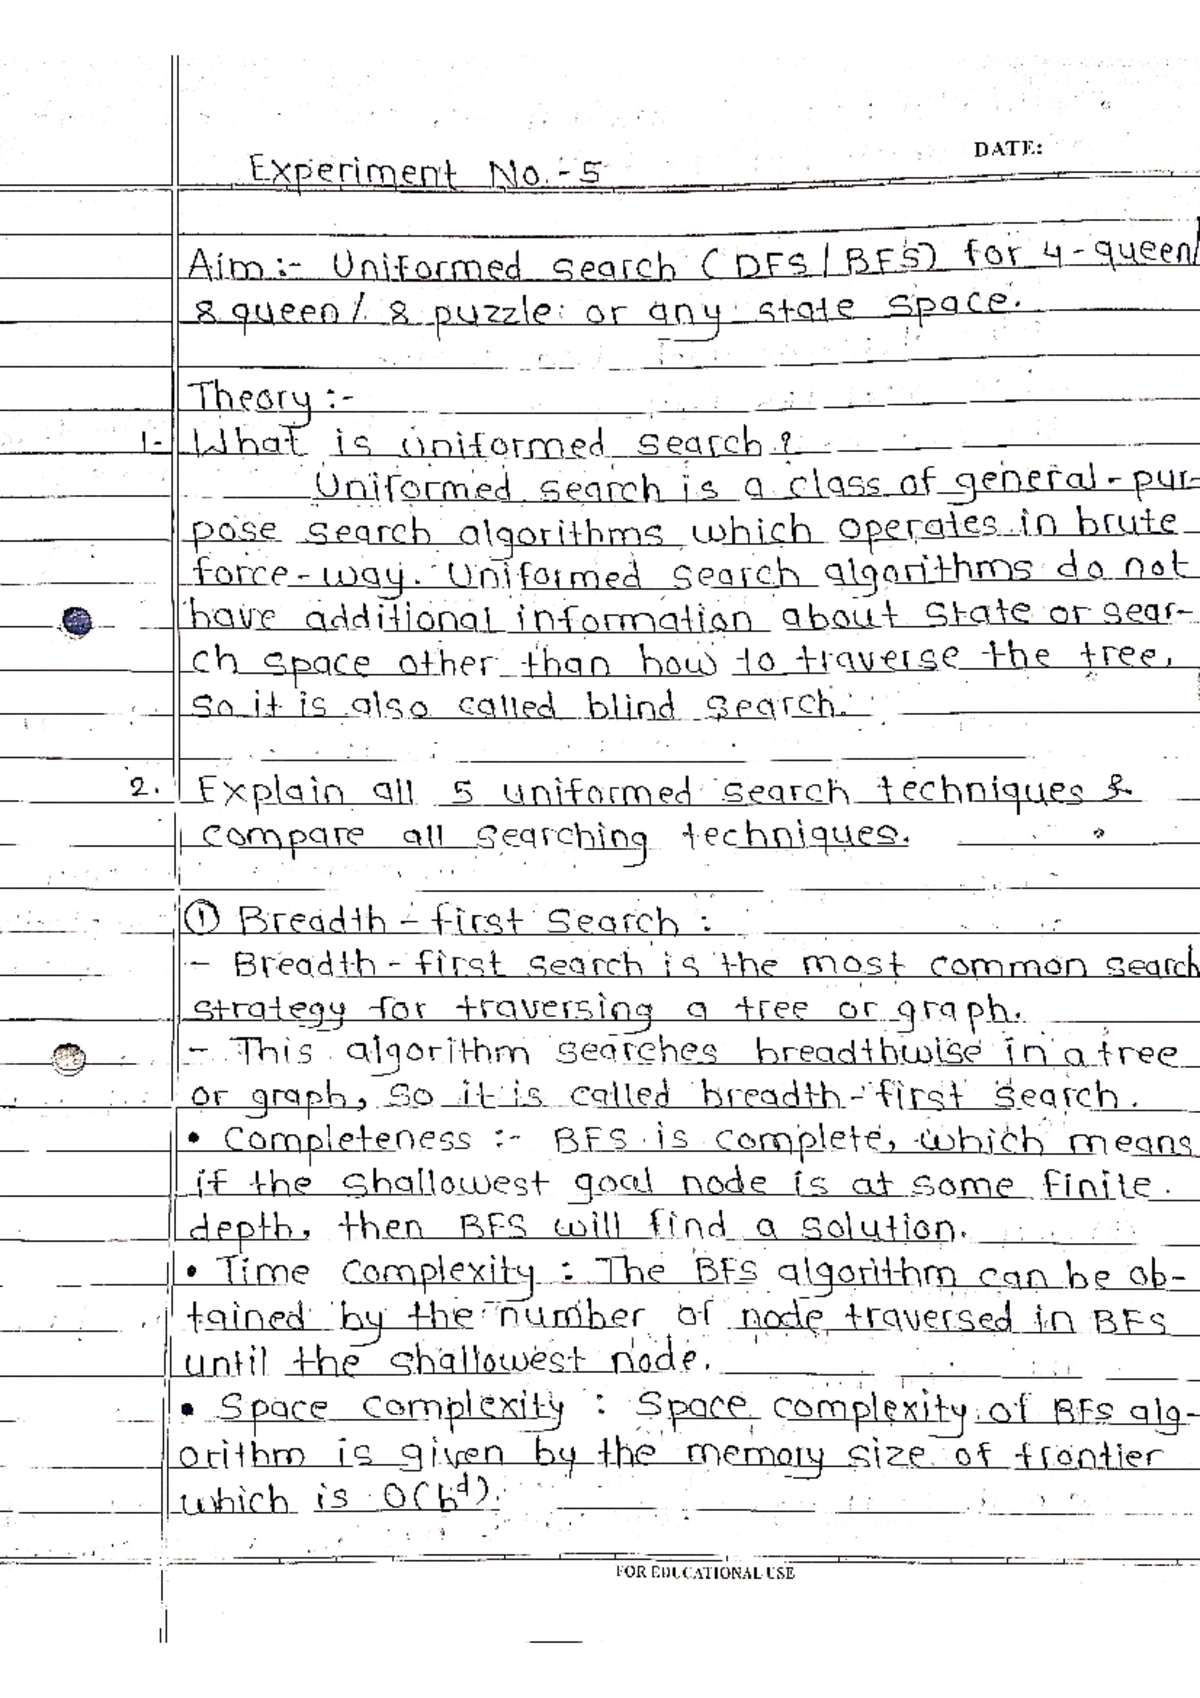 DATE:
Experiment No.-5
Aim:- Uniformed search (DFS/BFS) for 4-queen/
8 queen/ 8 puzzle or any state space.
Theory :-
1- What is uniformed search?
Uniformed search is a class of general-pur-
pose search algorithms which operates in brute
force-way. Uniformed search algorithms do not
have additional information about state or sear-
ch space other than how to traverse the tree,
so it is also called blind search.
2. Explain all 5 uniformed search techniques &
compare all searching techniques.
① Breadth-first Search :
- Breadth-first search is the most common search
strategy for traversing a tree or graph.
- This algorithm searches breadthwise in a tree
or graph, so it is called breadth-first search.
• Completeness :- BFS is complete, which means
if the shallowest goal node is at some finite
depth, then BFS will find a solution.
• Time complexity : The BFS algorithm can be ob-
tained by the number of node traversed in BFS
until the shallowest node.
• Space complexity : Space complexity of BFS alg-
orithm is given by the memory size of frontier
which is O(b^d).
FOR EDUCATIONAL USE